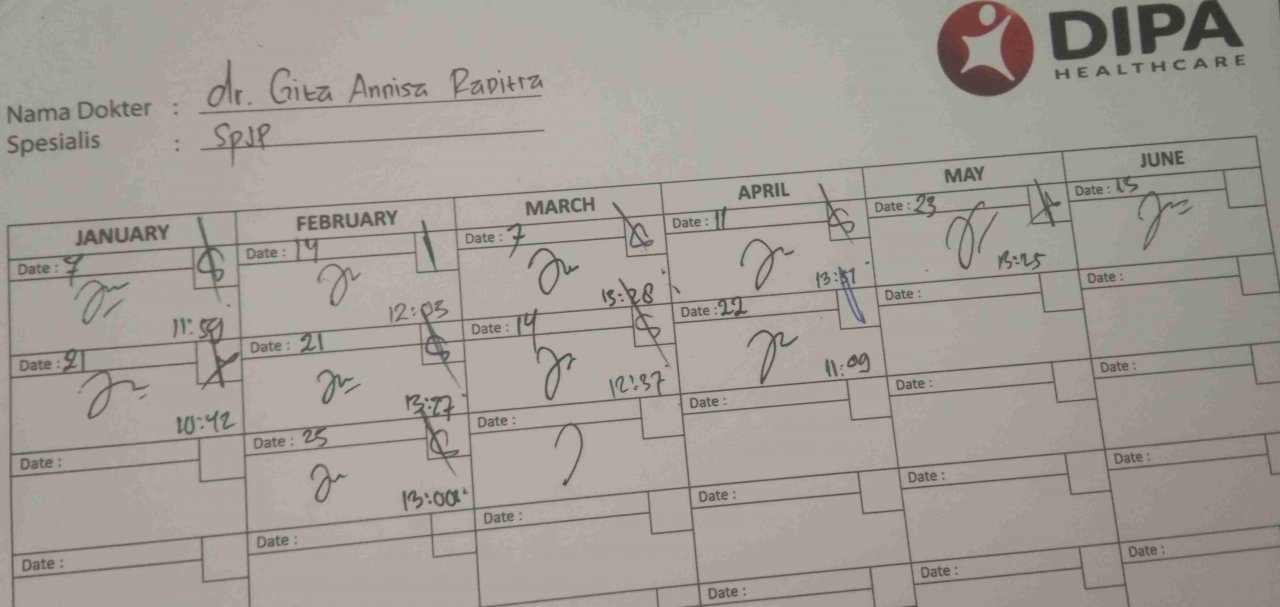 DIPA
HEALTHCARE
Nama Dokter : dr. Gita Annisa Raditra
Spesialis : SpJP
JANUARY FEBRUARY MARCH APRIL MAY JUNE
Date : 7 Date : 14 Date : 7 Date : 11 Date : 23 Date : 15
11:59 12:03 13:28 13:51 13:25
Date : 21 Date : 21 Date : 14 Date : 22 Date : Date :
10:42 13:27 12:37 11:09
Date : Date : 25 Date : Date : Date : Date :
13:00
Date : Date : Date : Date : Date : Date :
Date : Date : Date :